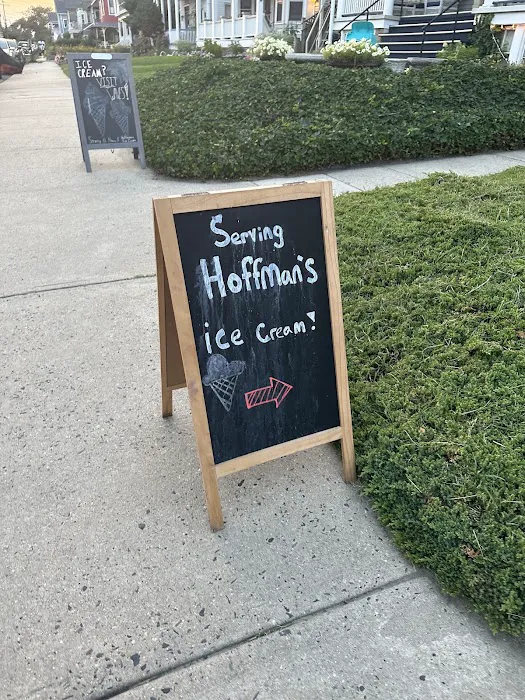 ICE
CREAM?
VISIT
Serving
Hoffman's
ice cream!